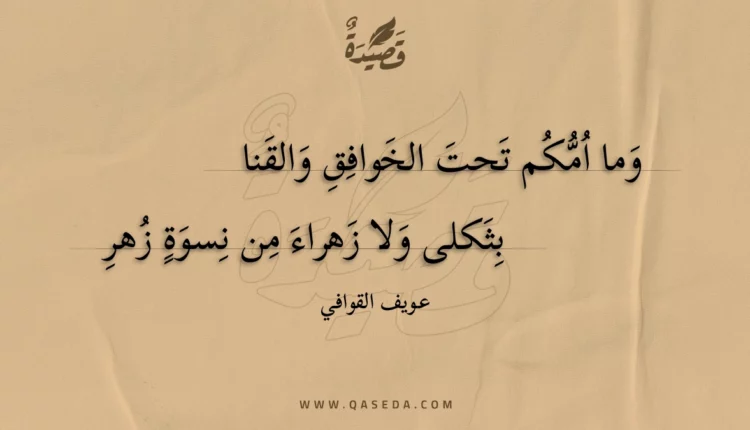 قَصِيدَةٌ
وَما اُمُّكُم تَحتَ الخَوافِقِ وَالقَنا
بِثَكلى وَلا زَهراءَ مِن نِسوَةٍ زُهرِ
عويف القوافي
WWW.QASEDA.COM